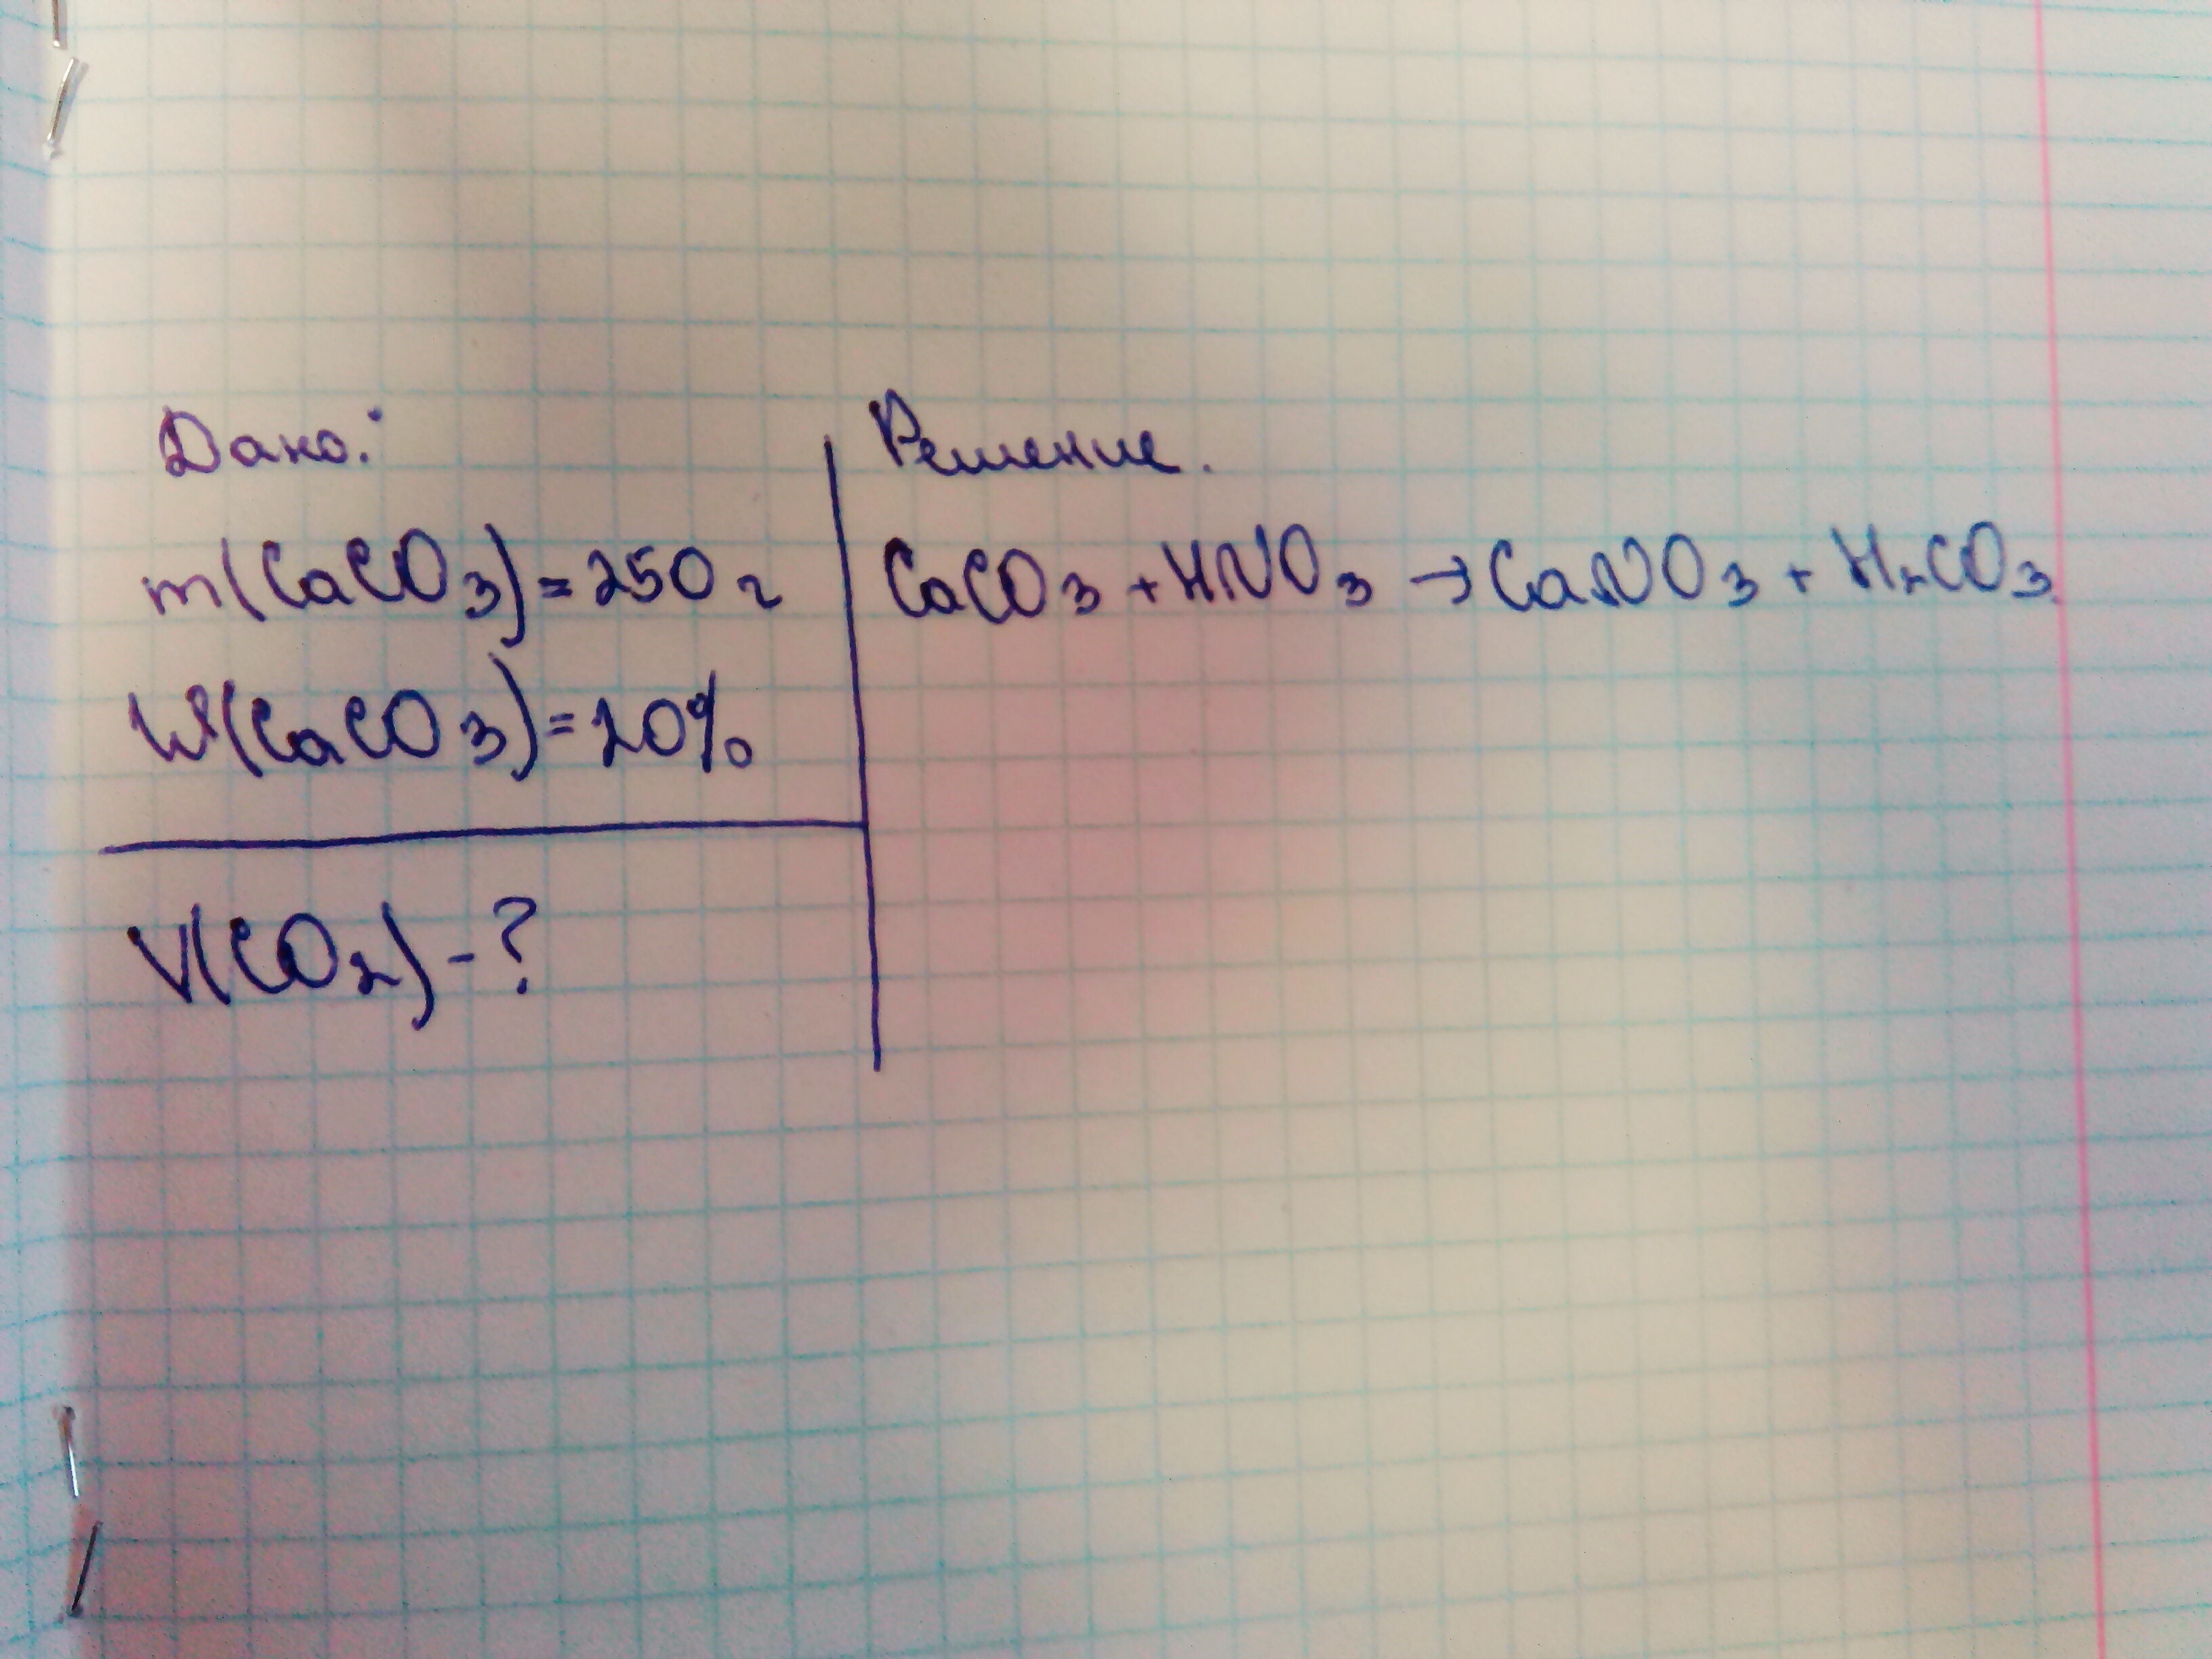 Дано:
m(CaCO3)=250г
W(CaCO3)=20%
V(CO2)-?
Решение.
CaCO3+HNO3→CaNO3+H2CO3